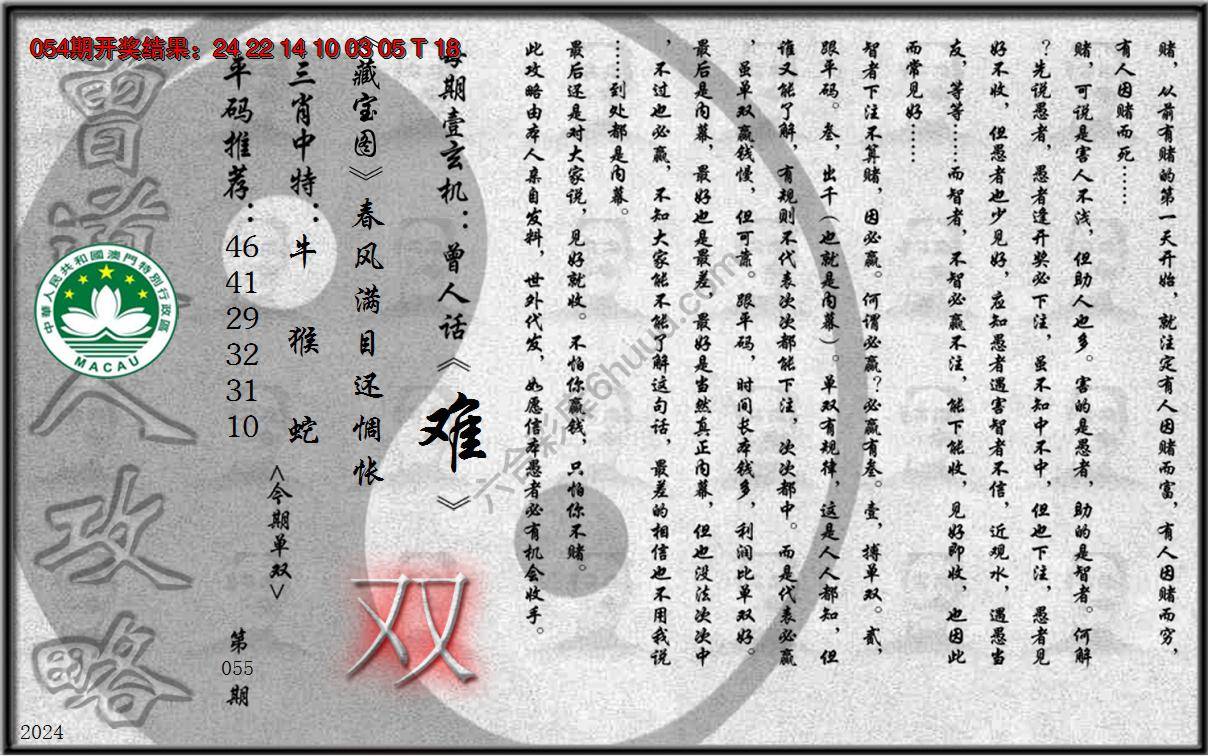 054期开奖结果：24 22 14 10 03 05 T 18
赌，从前有赌的第一天开始，就注定有人因赌而富，有人因赌而穷，
有人因赌而死……
赌，可说是害人不浅，但助人也多。害的是愚者，助的是智者。何解
？先说愚者，愚者逢开奖必下注，虽不知中不中，但也下注，愚者见
好不收，但愚者也少见好，应知愚者遇害智者不信，近观水，遇愚当
友，等等……而智者，不智必赢不注，能下能收，见好即收，也因此
而常见好……
智者下注不算赌，因必赢。何谓必赢？必赢有叁。壹，搏单双。贰，
跟平码。叁，出千（也就是内幕）。单双有规律，这是人人都知，但
谁又能了解，有规则不代表次次都能下注，次次都中。而是代表必赢
，虽单双赢钱慢，但可靠。跟平码，时间长本钱多，利润比单双好。
最后是内幕，最好也是最差，最好是当然真正内幕，但也没法次次中
，不过也必赢，不知大家能不能了解这句话，最差的相信也不用我说
……到处都是内幕。
最后还是对大家说，见好就收。不怕你赢钱，只怕你不赌。
此攻略由本人亲自发料，世外代发，如愿信本愚者必有机会收手。
每期壹玄机：曾人话《难》
《藏宝图》春风满目还惆怅
三肖中特：牛 猴 蛇
平码推荐：46 41 29 32 31 10
<今期单双>
双
第055期
曾道人攻略
中華人民共和國澳門特別行政區
MACAU
六合彩库6huuu.com
2024